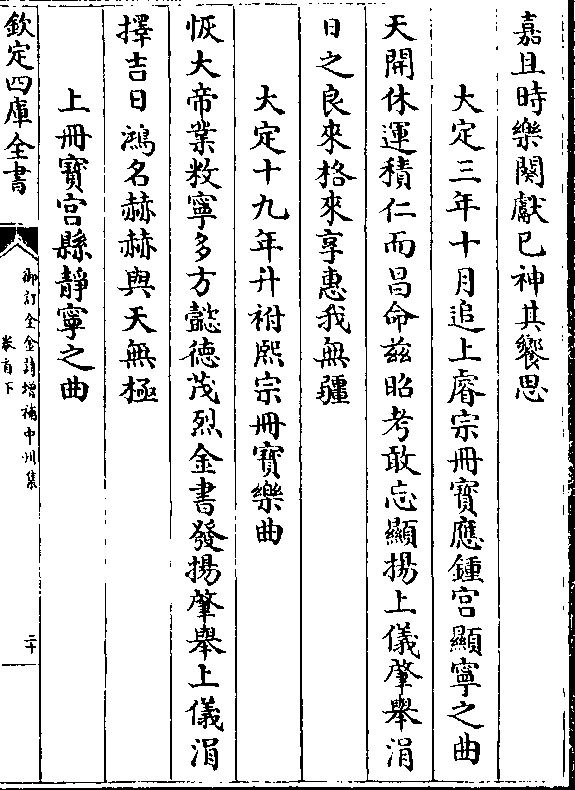 嘉且時樂闋獻已神其饗思
大定三年十月追上睿宗冊寶應鍾宮顯寧之曲
天開休運積仁而昌命茲昭考敢忘顯揚上儀肇舉涓
日之良來格來享惠我無疆
大定十九年升祔熙宗冊寶樂曲
恢大帝業敉寧多方懿德茂烈金書發揚肇舉上儀涓
擇吉日鴻名赫赫與天無極
上冊寶宮縣靜寧之曲
欽定四庫全書
御訂全金詩增補中州集
卷首下
二十